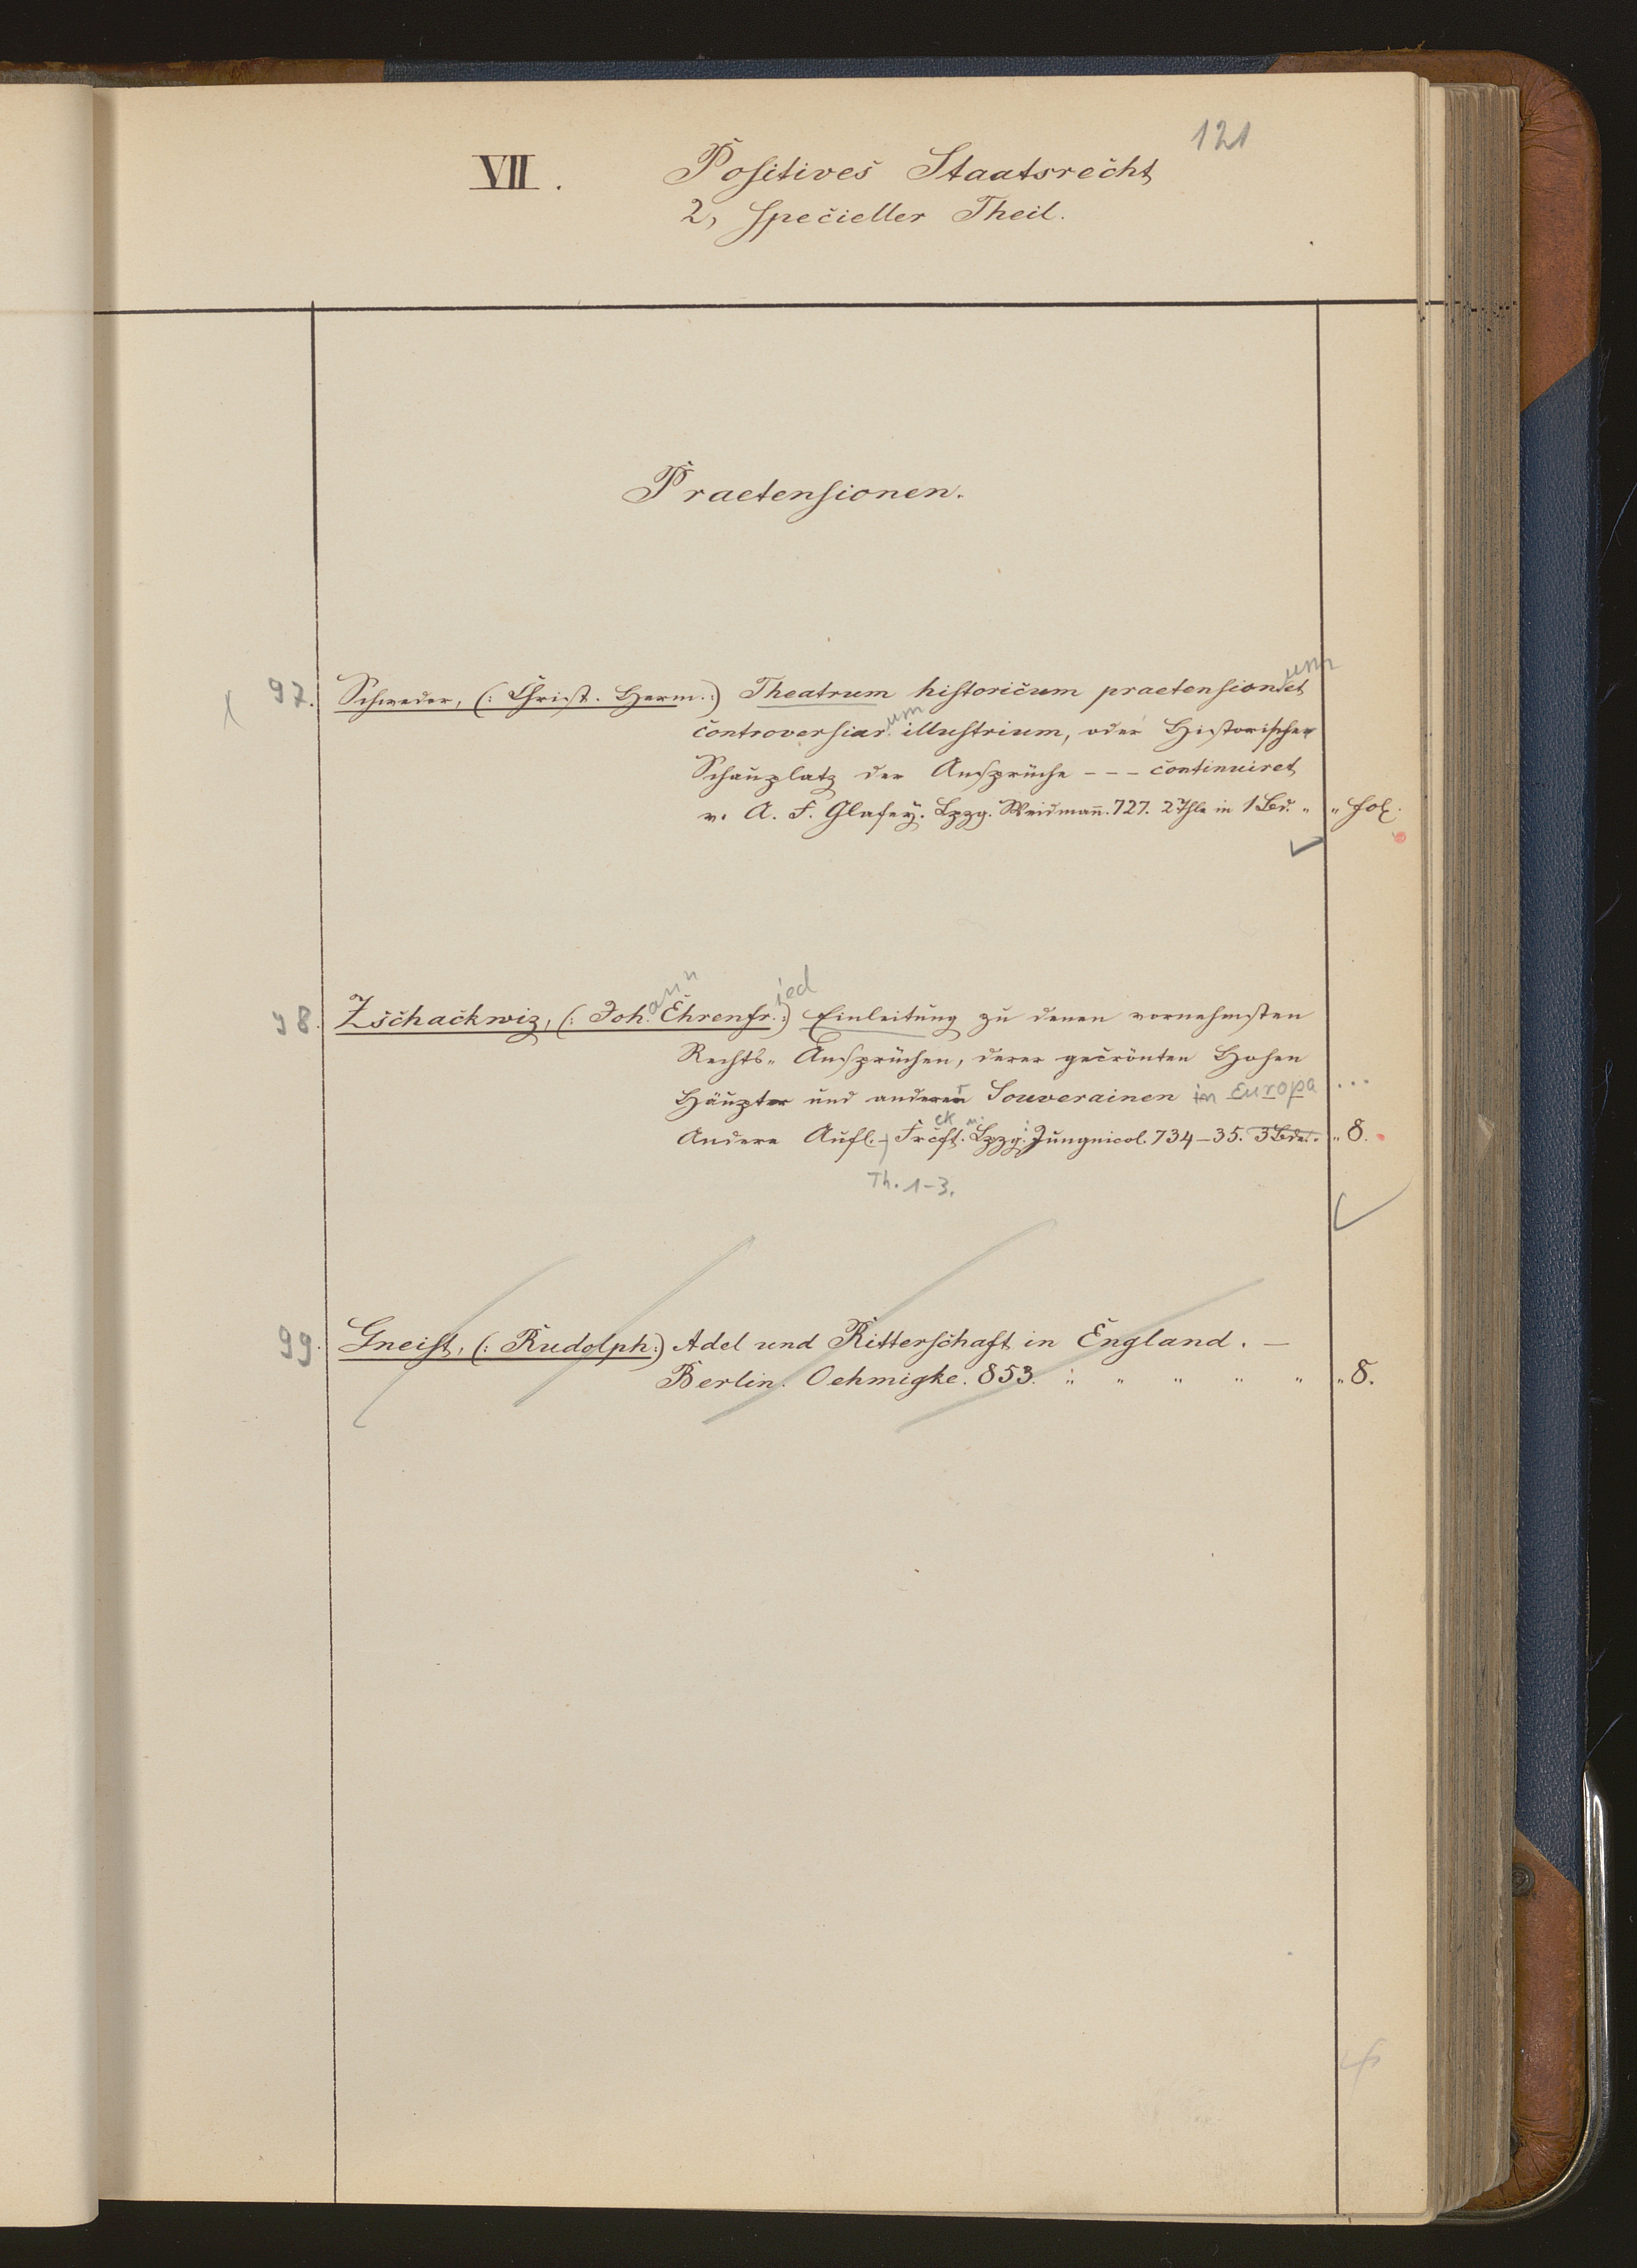 121
VII. Positives Staatsrecht
2, specieller Theil.
Praetensionen.
97. Schweder, (: Christ. Herm. :) Theatrum historicum praetensionum et
controversiarum illustrium, oder Historischer
Schauplatz der Ansprüche - - - continuiret
v. A. F. Glafey. Lpzg. Weidmann. 727. 2 Thle in 1 Bd. " " fol.
98. Zschackwiz, (: Johann Ehrenfried :) Einleitung zu denen vornehmsten
Rechts- Ansprüchen, derer gecrönten Hohen
Häupter und anderer Souverainen in Europa ...
Andere Aufl. - Frckft. u. Lpzg: Jungnicol. 734-35. 3 Bde. " " 8.
Th. 1-3.
99. Gneist, (: Rudolph :) Adel und Ritterschaft in England. -
Berlin. Oehmigke. 853. " " " " " " 8.